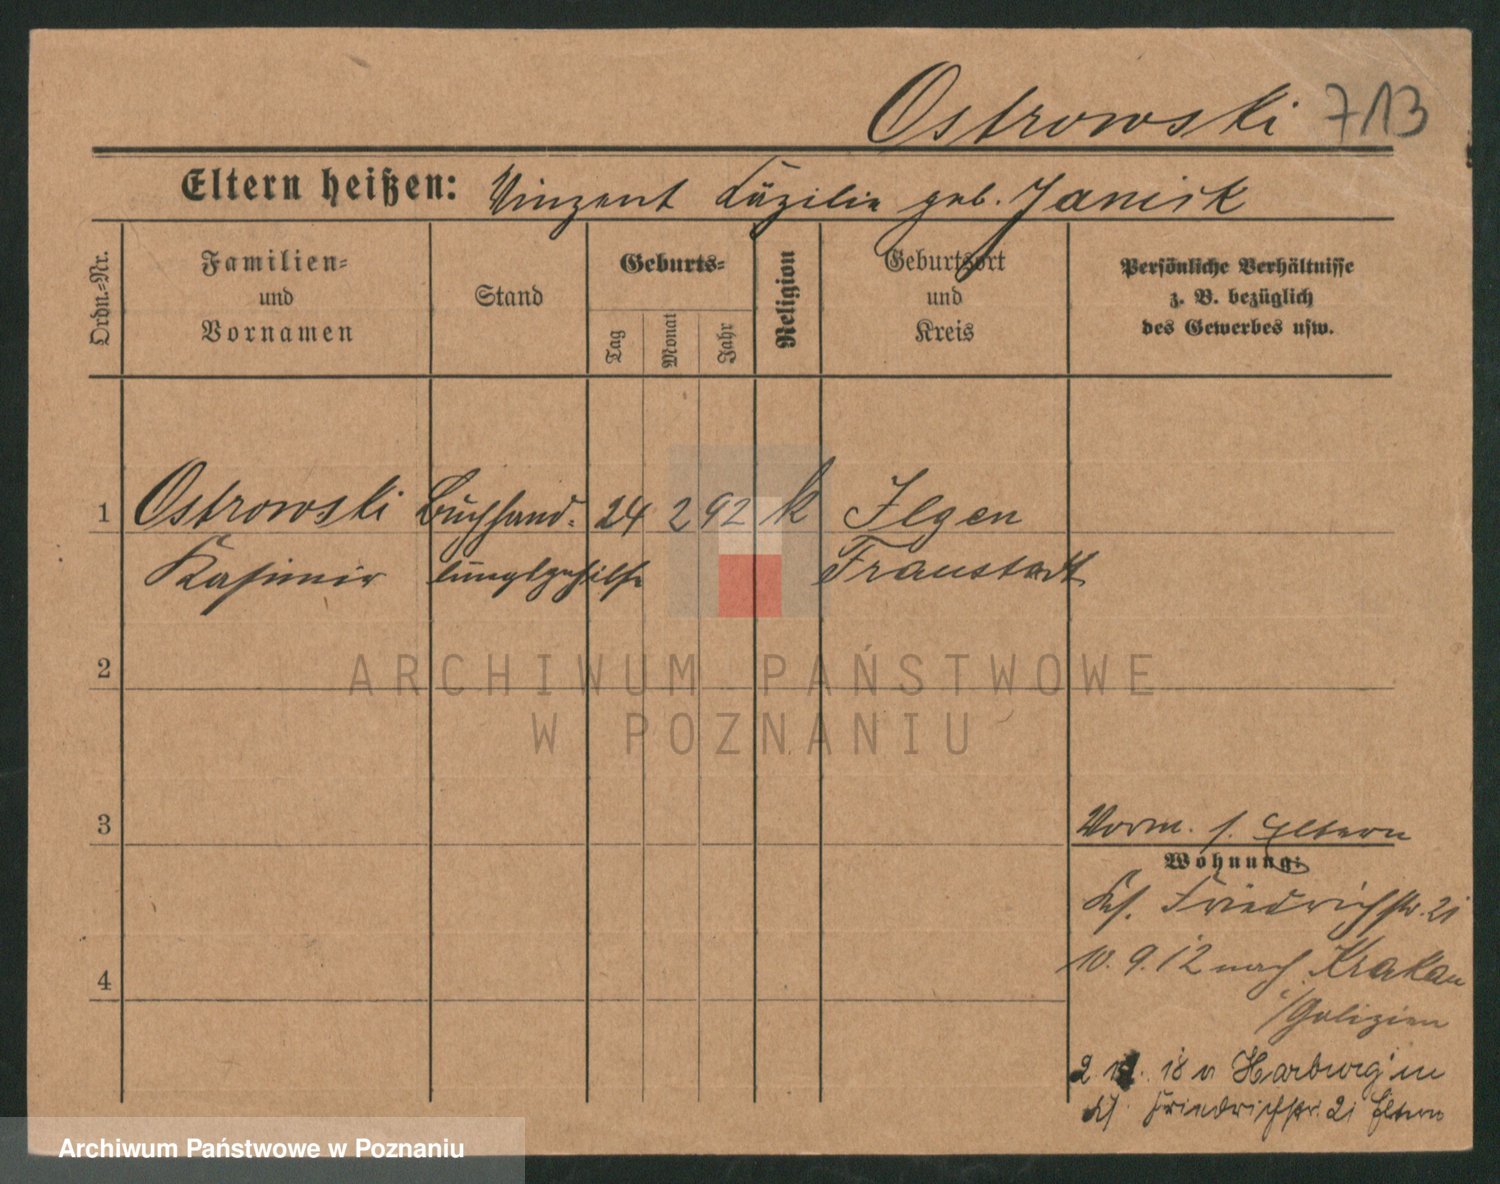 Ostrowski 713
Eltern heißen: Vinzent Cäzilie geb. Janisk
Ordn.-Nr.
Familien- und Vornamen
Stand
Geburts-
Tag Monat Jahr
Religion
Geburtsort und Kreis
Persönliche Verhältnisse
z. B. bezüglich
des Gewerbes usw.
1 Ostrowski Buchhand- 24 2 92 k Ilgen
Kasimir lungsgehilfe Fraustadt
2
ARCHIWUM PAŃSTWOWE
W POZNANIU
3
Vorm. s. Eltern
Wohnung:
Friedrichstr. 21
4
10.9.12 nach Krakau
/Galizien
2 18 v Harburg in
Friedrichstr. 21 Eltern
Archiwum Państwowe w Poznaniu